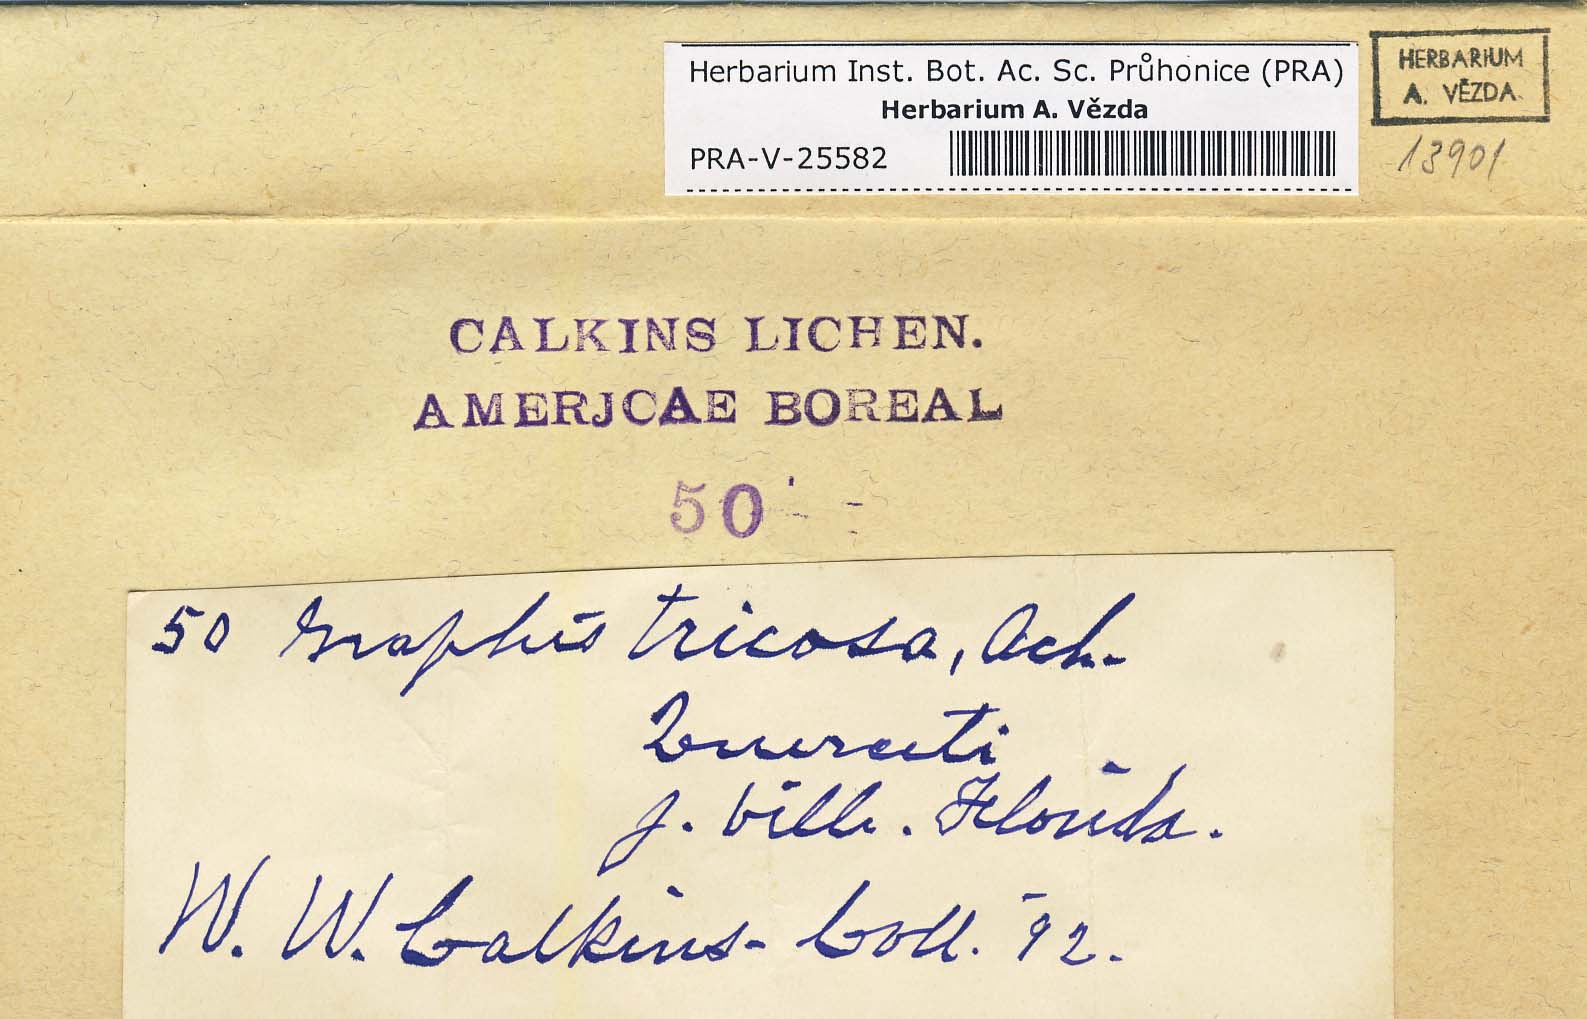 Herbarium Inst. Bot. Ac. Sc. Průhonice (PRA)
Herbarium A. Vězda
PRA-V-25582
HERBARIUM
A. VĚZDA
13901
CALKINS LICHEN.
AMERJCAE BOREAL
50
50 Graphis tricosa, Ach.
J. Ville. Florida.
W. W. Calkins - Coll. '92.